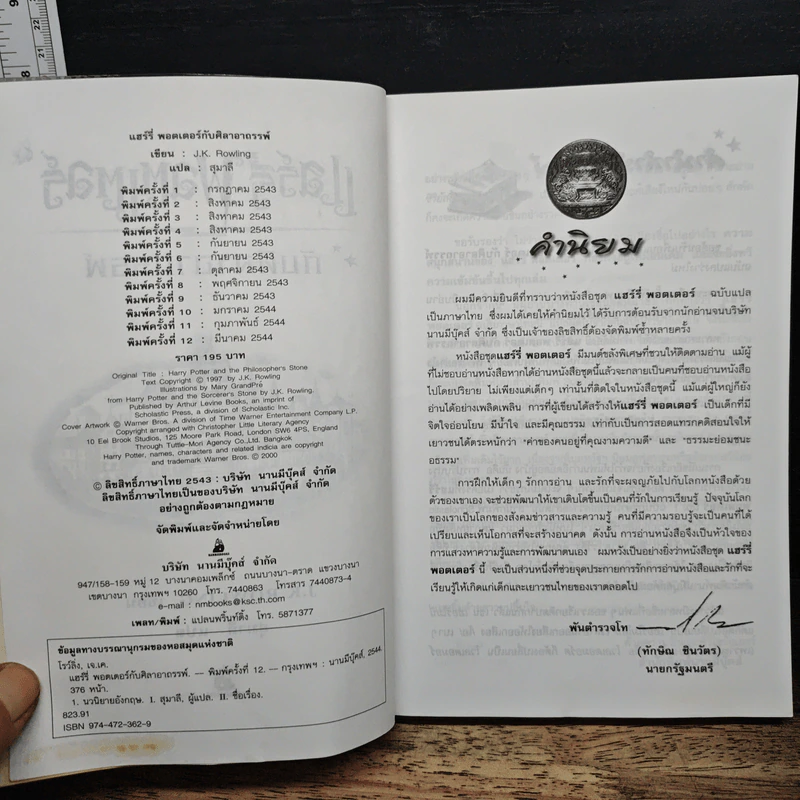 แฮร์รี่ พอตเตอร์กับศิลาอาถรรพ์
เขียน : J.K. Rowling
แปล : สุมาลี
พิมพ์ครั้งที่ 1 : กรกฎาคม 2543
พิมพ์ครั้งที่ 2 : สิงหาคม 2543
พิมพ์ครั้งที่ 3 : สิงหาคม 2543
พิมพ์ครั้งที่ 4 : สิงหาคม 2543
พิมพ์ครั้งที่ 5 : กันยายน 2543
พิมพ์ครั้งที่ 6 : กันยายน 2543
พิมพ์ครั้งที่ 7 : ตุลาคม 2543
พิมพ์ครั้งที่ 8 : พฤศจิกายน 2543
พิมพ์ครั้งที่ 9 : ธันวาคม 2543
พิมพ์ครั้งที่ 10 : มกราคม 2544
พิมพ์ครั้งที่ 11 : กุมภาพันธ์ 2544
พิมพ์ครั้งที่ 12 : มีนาคม 2544
ราคา 195 บาท
Original Title : Harry Potter and the Philosopher's Stone
Text Copyright © 1997 by J.K. Rowling
Illustrations by Mary GrandPré
from Harry Potter and the Sorcerer's Stone by J.K. Rowling.
Published by Arthur Levine Books, an imprint of
Scholastic Press, a division of Scholastic Inc.
Cover Artwork © Warner Bros. A division of Time Warner Entertainment Company L.P.
Copyright arranged with Christopher Little Literary Agency
10 Eel Brook Studios, 125 Moore Park Road, London SW6 4PS, England
Through Tuttle-Mori Agency Co.,Ltd. Bangkok
Harry Potter, names, characters and related indicia are copyright
and trademark Warner Bros. © 2000
© ลิขสิทธิ์ภาษาไทย 2543 : บริษัท นานมีบุ๊คส์ จำกัด
ลิขสิทธิ์ภาษาไทยเป็นของบริษัท นานมีบุ๊คส์ จำกัด
อย่างถูกต้องตามกฎหมาย
จัดพิมพ์และจัดจำหน่ายโดย
บริษัท นานมีบุ๊คส์ จำกัด
947/158-159 หมู่ 12 บางนาคอมเพล็กซ์ ถนนบางนา-ตราด แขวงบางนา
เขตบางนา กรุงเทพฯ 10260 โทร. 7440863 โทรสาร 7440873-4
e-mail : nmbooks@ksc.th.com
เพลท/พิมพ์ : แปลนพริ้นท์ติ้ง โทร. 5871377
ข้อมูลทางบรรณานุกรมของหอสมุดแห่งชาติ
โรว์ลิ่ง, เจ.เค.
แฮร์รี่ พอตเตอร์กับศิลาอาถรรพ์. — พิมพ์ครั้งที่ 12. — กรุงเทพฯ : นานมีบุ๊คส์, 2544.
376 หน้า.
1. นวนิยายอังกฤษ. I. สุมาลี, ผู้แปล. II. ชื่อเรื่อง.
823.91
ISBN 974-472-362-9
คำนิยม
ผมมีความยินดีที่ทราบว่าหนังสือชุด แฮร์รี่ พอตเตอร์ ฉบับแปล
เป็นภาษาไทย ซึ่งผมได้เคยให้คำนิยมไว้ ได้รับการต้อนรับจากนักอ่านจนบริษัท
นานมีบุ๊คส์ จำกัด ซึ่งเป็นเจ้าของลิขสิทธิ์ต้องจัดพิมพ์ซ้ำหลายครั้ง
หนังสือชุดแฮร์รี่ พอตเตอร์ มีมนต์ขลังพิเศษที่ชวนให้ติดตามอ่าน แม้ผู้
ที่ไม่ชอบอ่านหนังสือหากได้อ่านหนังสือชุดนี้แล้วจะกลายเป็นคนที่ชอบอ่านหนังสือ
ไปโดยปริยาย ไม่เพียงแต่เด็กๆ เท่านั้นที่ติดใจในหนังสือชุดนี้ แม้แต่ผู้ใหญ่ก็ยัง
อ่านได้อย่างเพลิดเพลิน การที่ผู้เขียนได้สร้างให้แฮร์รี่ พอตเตอร์ เป็นเด็กที่มี
จิตใจอ่อนโยน มีน้ำใจ และมีคุณธรรม เท่ากับเป็นการสอดแทรกคติสอนใจให้
เยาวชนได้ตระหนักว่า "ค่าของคนอยู่ที่คุณงามความดี" และ "ธรรมะย่อมชนะ
อธรรม"
การฝึกให้เด็กๆ รักการอ่าน และรักที่จะผจญภัยไปกับโลกหนังสือด้วย
ตัวของเขาเอง จะช่วยพัฒนาให้เขาเติบโตขึ้นเป็นคนที่รักในการเรียนรู้ ปัจจุบันโลก
ของเราเป็นโลกของสังคมข่าวสารและความรู้ คนที่มีความรอบรู้จะเป็นคนที่ได้
เปรียบและเห็นโอกาสที่จะสร้างอนาคต ดังนั้น การอ่านหนังสือจึงเป็นหัวใจของ
การแสวงหาความรู้และการพัฒนาตนเอง ผมหวังเป็นอย่างยิ่งว่าหนังสือชุด แฮร์รี่
พอตเตอร์ นี้ จะเป็นส่วนหนึ่งที่ช่วยจุดประกายการรักการอ่านหนังสือและรักที่จะ
เรียนรู้ให้เกิดแก่เด็กและเยาวชนไทยของเราตลอดไป
พันตำรวจโท
(ทักษิณ ชินวัตร)
นายกรัฐมนตรี